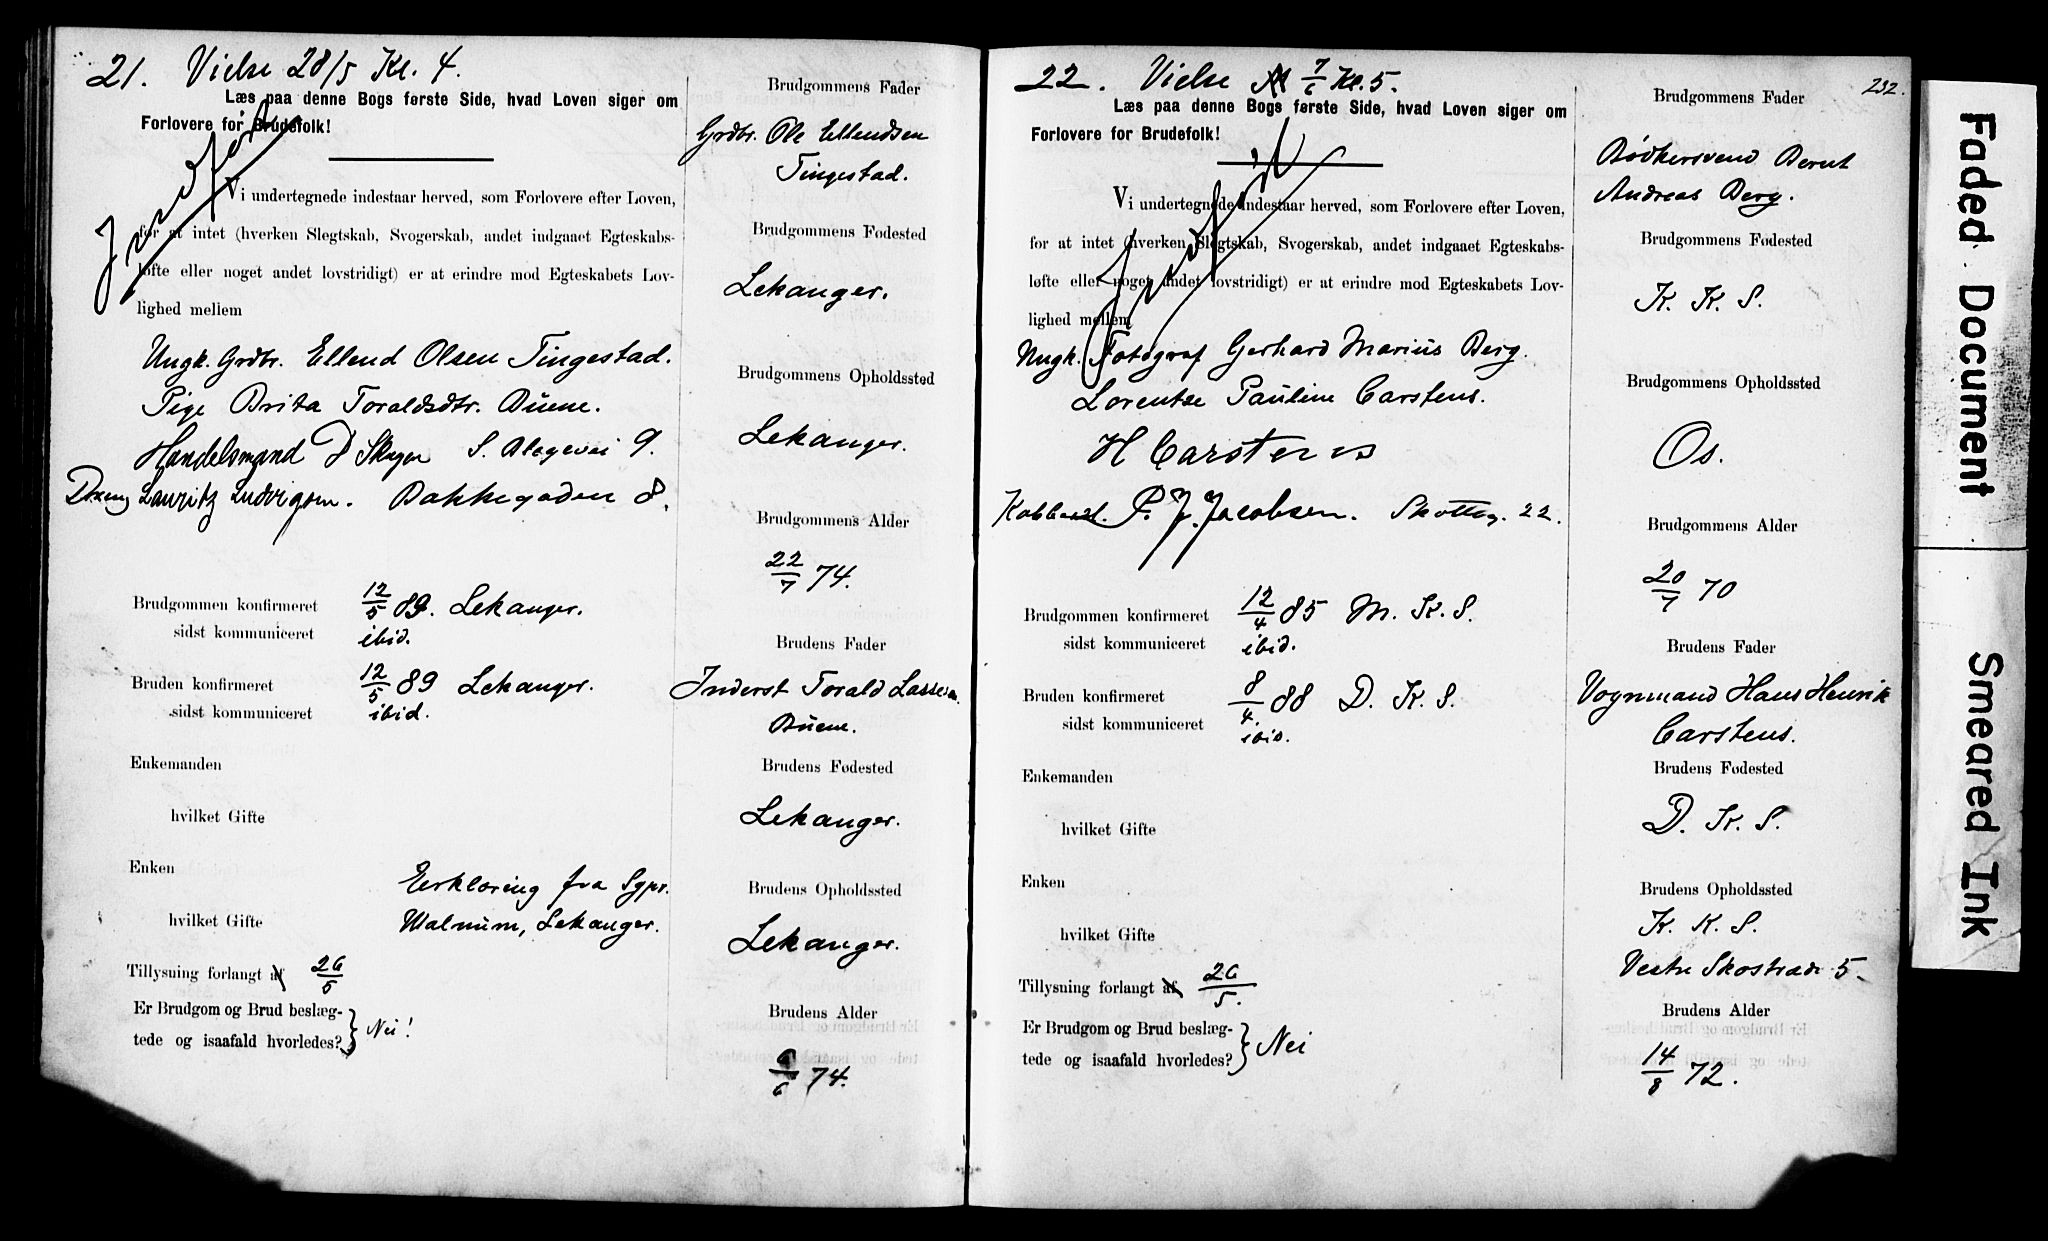 21. Vielse 28/5 Kl. 4.
Læs paa denne Bogs første Side, hvad Loven siger om
Forlovere for Brudefolk!
Indført
Vi undertegnede indestaar herved, som Forlovere efter Loven,
for at intet (hverken Slegtskab, Svogerskab, andet indgaaet Egteskabs-
løfte eller noget andet lovstridigt) er at erindre mod Egteskabets Lov-
lighed mellem
Ungk. Grdbr. Ellend Olsen Tingestad.
Pige Brita Toraldsdtr. Büene.
Handelsmand D Skagen S. Blegevei 9.
Lauritz Ludvigsen. Bakkegaden 8.
Brudgommen konfirmeret 12/5 89. Lekanger.
sidst kommuniceret ibid.
Bruden konfirmeret 12/5 89 Lekanger.
sidst kommuniceret ibid.
Enkemanden
hvilket Gifte
Enken Erklæring fra Sgpr.
hvilket Gifte Walnum, Lekanger.
Tillysning forlangt af 26/5
Er Brudgom og Brud beslæg-
tede og isaafald hvorledes? } Nei!
Brudgommens Fader
Grdbr. Ole Ellendsen
Tingestad.
Brudgommens Fødested
Lekanger.
Brudgommens Opholdssted
Lekanger.
Brudgommens Alder
22/7 74.
Brudens Fader
Inderst Torald Lassesen
Büene.
Brudens Fødested
Lekanger.
Brudens Opholdssted
Lekanger.
Brudens Alder
/6 74.
22. Vielse 7/6 Kl. 5.
Læs paa denne Bogs første Side, hvad Loven siger om
Forlovere for Brudefolk!
Indført
Vi undertegnede indestaar herved, som Forlovere efter Loven,
for at intet (hverken Slegtskab, Svogerskab, andet indgaaet Egteskabs-
løfte eller noget andet lovstridigt) er at erindre mod Egteskabets Lov-
lighed mellem
Ungk. Fotograf Gerhard Marius Berg.
Lorentze Pauline Carstens.
H Carstens
P. J. Jacobsen. Skotteg. 22.
Brudgommen konfirmeret 12/4 85 M. K. S.
sidst kommuniceret ibid.
Bruden konfirmeret 8/4. 88 D. K. S.
sidst kommuniceret ibid.
Enkemanden
hvilket Gifte
Enken
hvilket Gifte
Tillysning forlangt af 26/5.
Er Brudgom og Brud beslæg-
tede og isaafald hvorledes? } Nei
232.
Brudgommens Fader
Bødkersvend Bernt
Andreas Berg.
Brudgommens Fødested
K. K. S.
Brudgommens Opholdssted
Os.
Brudgommens Alder
20/7 70
Brudens Fader
Vognmand Hans Henrik
Carstens.
Brudens Fødested
D. K. S.
Brudens Opholdssted
K. K. S.
Vestre Skostræde 5.
Brudens Alder
14/8 72.
Faded Document
Smeared Ink